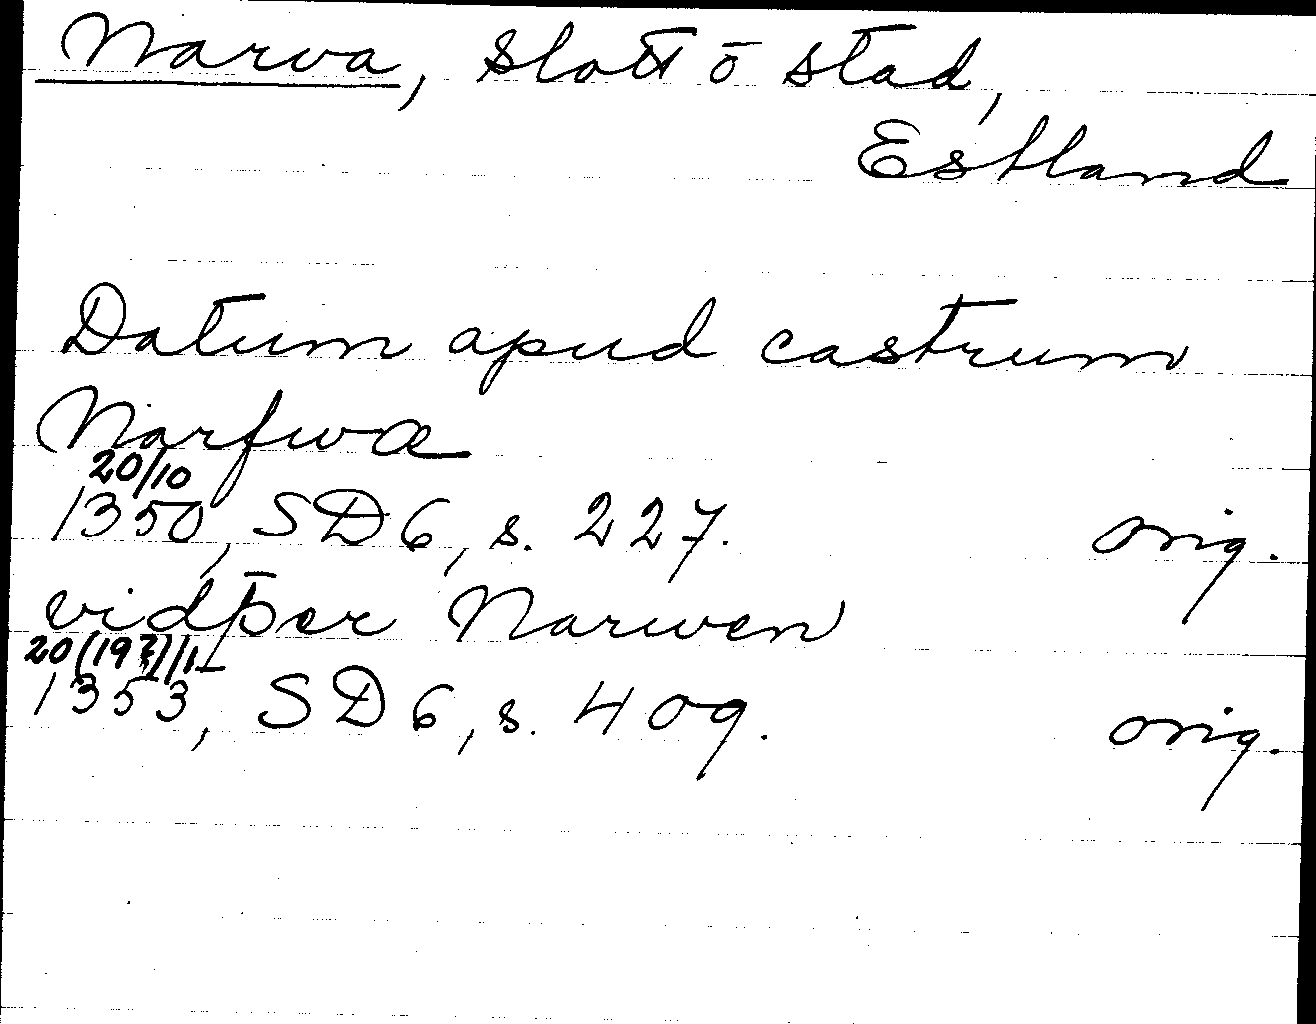 Narva, slott ō stad,
Estland
Datum apud castrum
Narfwæ
20/10
1350, SD6, s. 227. orig.
vidþer Narwen
20(19?)/1
1353, SD6, s. 409. orig.